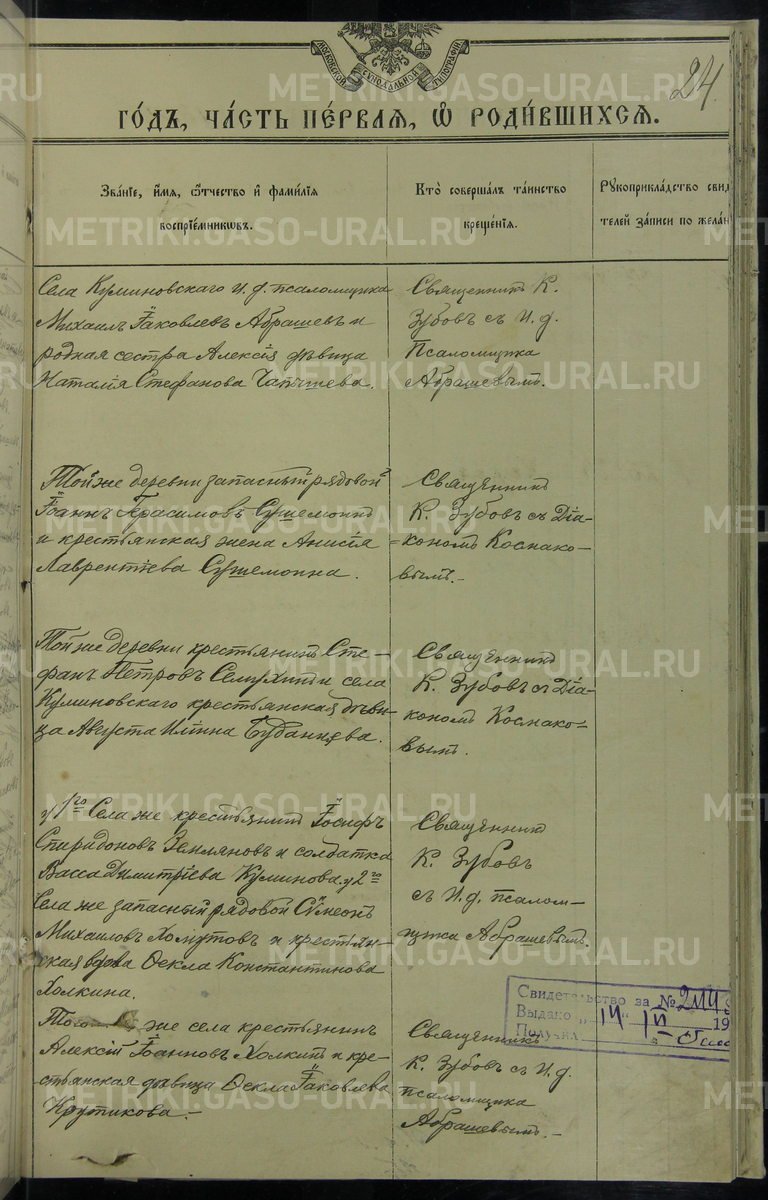 МОСКОВСКОЙ СѴНОДАЛЬНОЙ ТИПОГРАФІИ
24.
ГО́ДЪ, ЧА́СТЬ ПЕ́РВАЯ, Ѡ҆ РОДИ́ВШИХСЯ.
Зва́нїе, и҆́мя, ѻ҆́тчество и҆ фами́лїя
воспрїе́мниковъ.
Кто̀ соверша́лъ та́инство
креще́нїя.
Рꙋкоприкла́дство свид
телей за́писи по жела́н
Села Куминовскаго и. д. псаломщика
Михаилъ Іаковлевъ Абрашевъ и
родная сестра Алексія дѣвица
Наталія Стефанова Чапышева.
Священникъ К.
Зубовъ съ и. д.
Псаломщика
Абрашевымъ.
Той же деревни запасный рядовой
Іоаннъ Герасимовъ Сушемоинъ
и крестьянская жена Анисія
Лаврентіева Сушемоина.
Священникъ
К. Зубовъ съ Діа-
кономъ Коснако-
вымъ.-
Той же деревни крестьянинъ Сте-
фанъ Петровъ Семухинъ и села
Куминовскаго крестьянская дѣви-
ца Августа Иліина Буданцева.
Священникъ
К. Зубовъ съ Діа-
кономъ Коснако-
вымъ.
у 1го Села же крестьянинъ Іосифъ
Спиридоновъ Земляновъ и солдатка
Васса Димитріева Куминова. у 2го
Села же запасный рядовой Сѵмеонъ
Михаиловъ Хомутовъ и крестьян-
ская вдова Ѳекла Константинова
Холкина.
Священникъ
К. Зубовъ
съ и. д. псалом-
щика Абрашевымъ.
Того же села крестьянинъ
Алексій Іоанновъ Холкинъ и кре-
стьянская дѣвица Ѳекла Іаковлева
Крутикова.-
Священникъ
К. Зубовъ съ и. д.
псаломщика
Абрашевымъ.-
Свидетельство за №
Выдано „14“ IV 19
Получил
METRIKI.GASO-URAL.RU